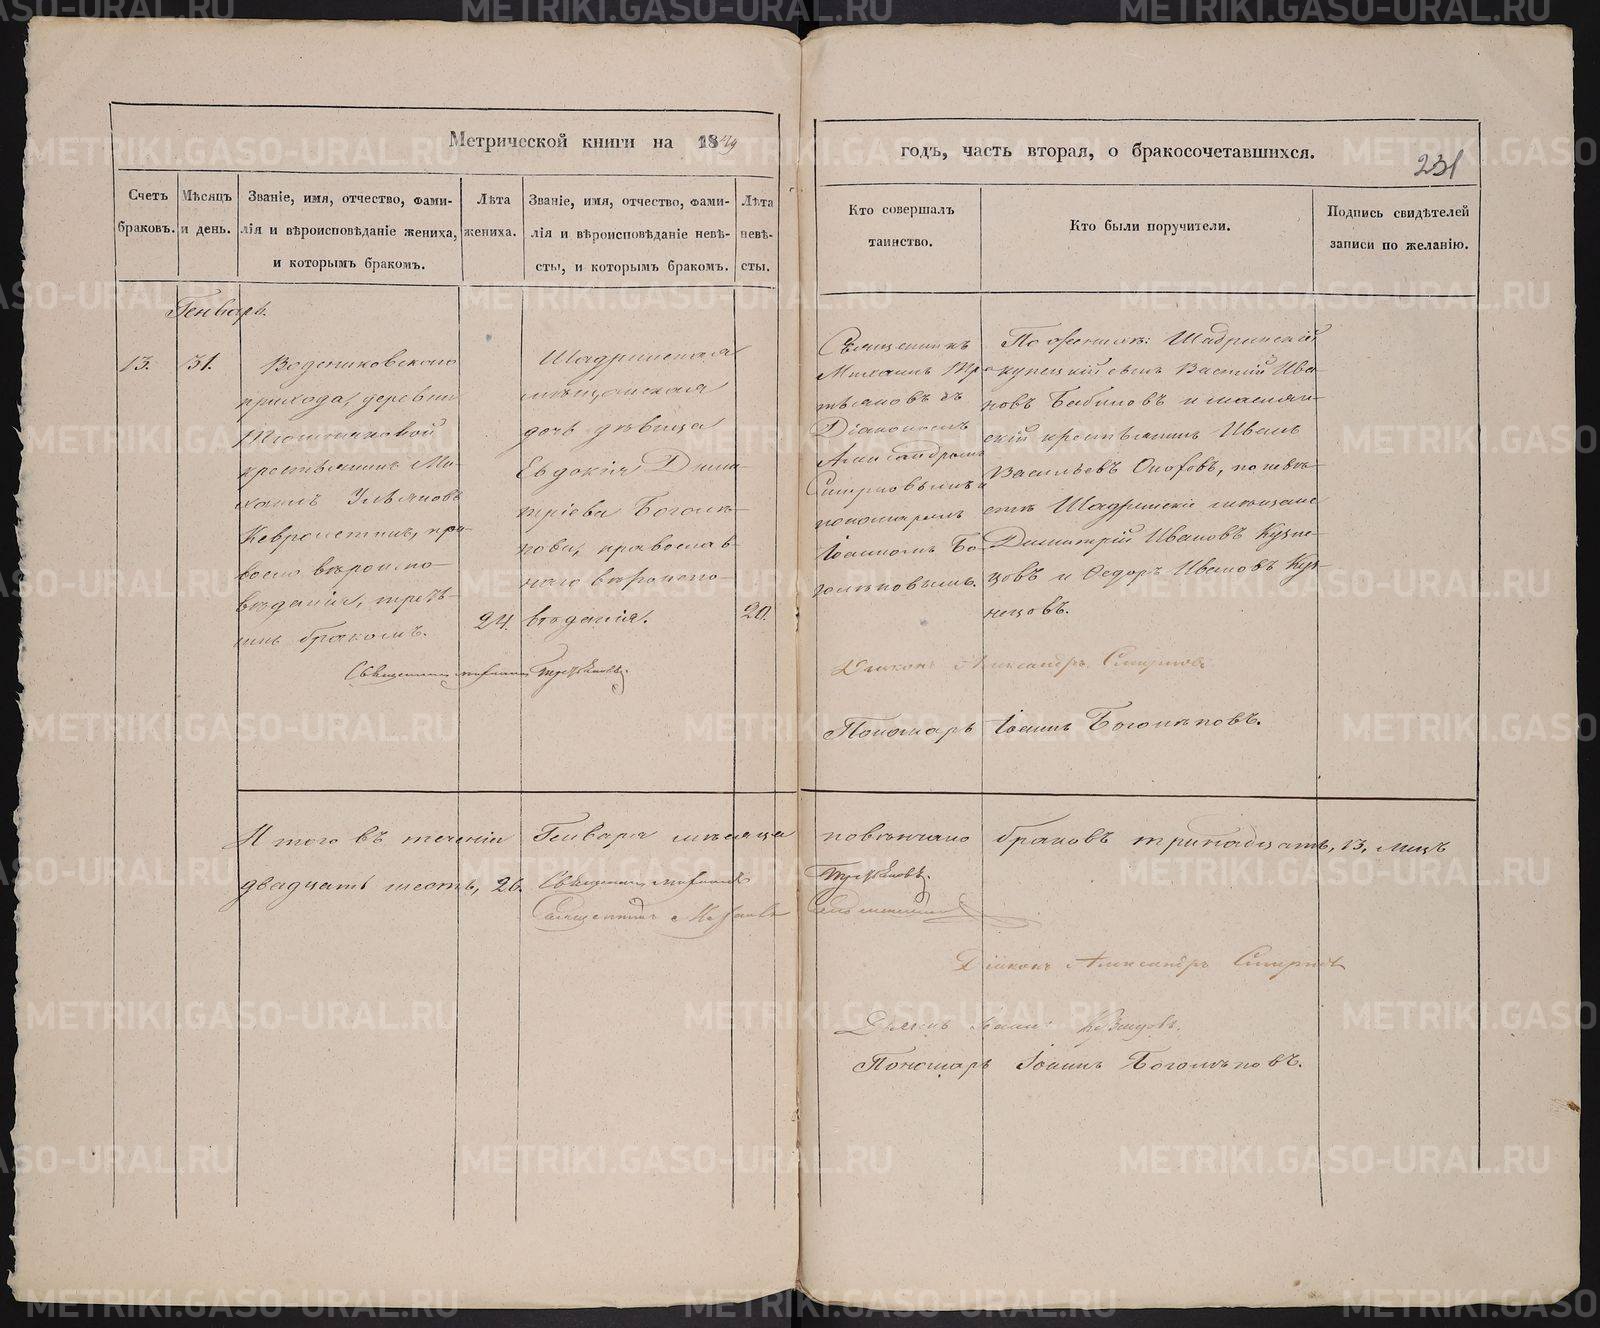 Метрической книги на 1849
годъ, часть вторая, о бракосочетавшихся.
231
Счетъ браковъ.
Мѣсяцъ и день.
Званіе, имя, отчество, фами-
лія и вѣроисповѣданіе жениха,
и которымъ бракомъ.
Лѣта
жениха.
Званіе, имя, отчество, фами-
лія и вѣроисповѣданіе невѣ-
сты, и которымъ бракомъ.
Лѣта
невѣ-
сты.
Кто совершалъ
таинство.
Кто были поручители.
Подпись свидѣтелей
записи по желанію.
Генварь.
13.
31.
Водениковскаго
прихода, деревни
крестьянинъ Ми-
хаилъ Ульяновъ
пра-
восл вѣроиспо-
вѣданія, треть-
имъ бракомъ.
24.
Шадринская
мѣщанская
дочь дѣвица
Евдокія Дими-
тріева Богомя-
кова, православ-
наго вѣроиспо-
вѣданія.
20.
Священникъ
Михаилъ Тре-
тьяковъ съ
Діакономъ
Александромъ
Смирновымъ и
пономаремъ
Іоанномъ Бо-
гомяковымъ.
По женихѣ: Шадринскій
купецкій сынъ Василій Ива-
новъ Бабиновъ и маслян-
скій крестьянинъ Иванъ
Васильевъ по невѣ-
стѣ Шадринскіе мѣщане
Димитрій Ивановъ Кузне-
цовъ и Ѳедоръ Ивановъ Куз-
нецовъ.
Священникъ Михаилъ Третьяковъ.
Діаконъ Александръ Смирновъ
Пономарь Іоаннъ Богомяковъ.
Итого въ теченіи Генваря мѣсяца повѣнчано браковъ тринадцать, 13, лицъ
двадцать шесть, 26. Священникъ Михаилъ Третьяковъ.
Священникъ
Діаконъ Александръ Смирновъ
Дьячекъ Іоаннъ
Пономарь Іоаннъ Богомяковъ.
METRIKI.GASO-URAL.RU